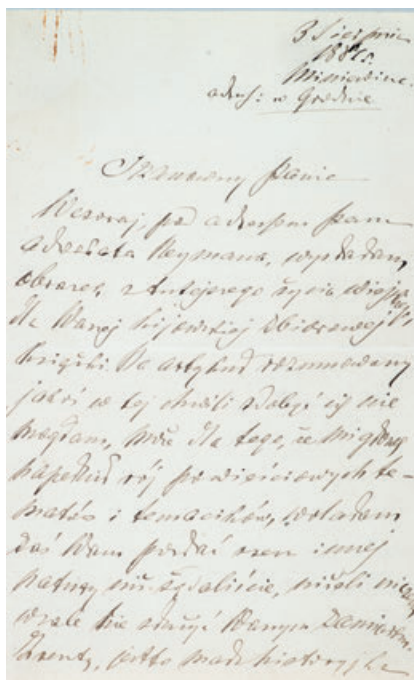 3 Sierpnia
188 r.
Miniewicze.
adres: w Grodnie
Szanowny Panie
Wczoraj pod adresem pana
adwokata Heymana, wysłałam,
obrazek z tutejszego życia
dla Waszej kijowskiej zbiorowej
książki. Na artykuł rozumowany
jakoś w tej chwili zdobyć się nie
mogłam, może dla tego, że mi głowę
napełnił rój powieściowych te-
matów i temacików, wolałam
zaś Wam posłać rzecz innej
natury niż żądaliście, niżeli niczem
wcale nie służyć Waszym zamiarom.
Zresztą, jest to mała historyjka